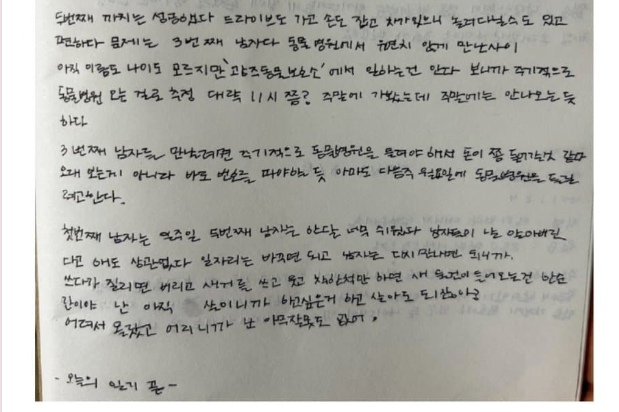 두번째 까지는 성공이었다 드라이브도 가고 손도 잡고 차가있으니 놀러다닐수도 있고
편하다 문제는 3번째 남자다 동물병원에서 우연치 않게 만난사이
아직 이름도 나이도 모르지만 '광주동물보호소' 에서 일하는건 안다 보니까 주기적으로
동물병원 오는 걸로 추정 대략 11시 쯤? 주말에 가봤는데 주말에는 안나오는 듯
하다
3번째 남자를 만날려면 주기적으로 동물병원을 들려야 해서 돈이 쫌 들거같다
오래 보는게 아니라 바로 번호를 따야할 듯 아마도 다음주 월요일에 동물병원을 들릴
려고한다.
첫번째 남자는 일주일 두번째 남자는 한달 너무 쉬웠다 남자들이 나를
다고 해도 상관없다 일자리는 바꾸면 되고 남자는 다시만나면 되니까.
쓰다가 질리면 버리고 새거를 쓰고 웃고 착한척만 하면 새 물건이 들어오는건
이야 난 아직 살이니까 하고싶은거 하고 살아도 되잖아?
어려서 몰랐고 어리니까 난 아무잘못도 없어.
- 오늘의 일기 끝 -